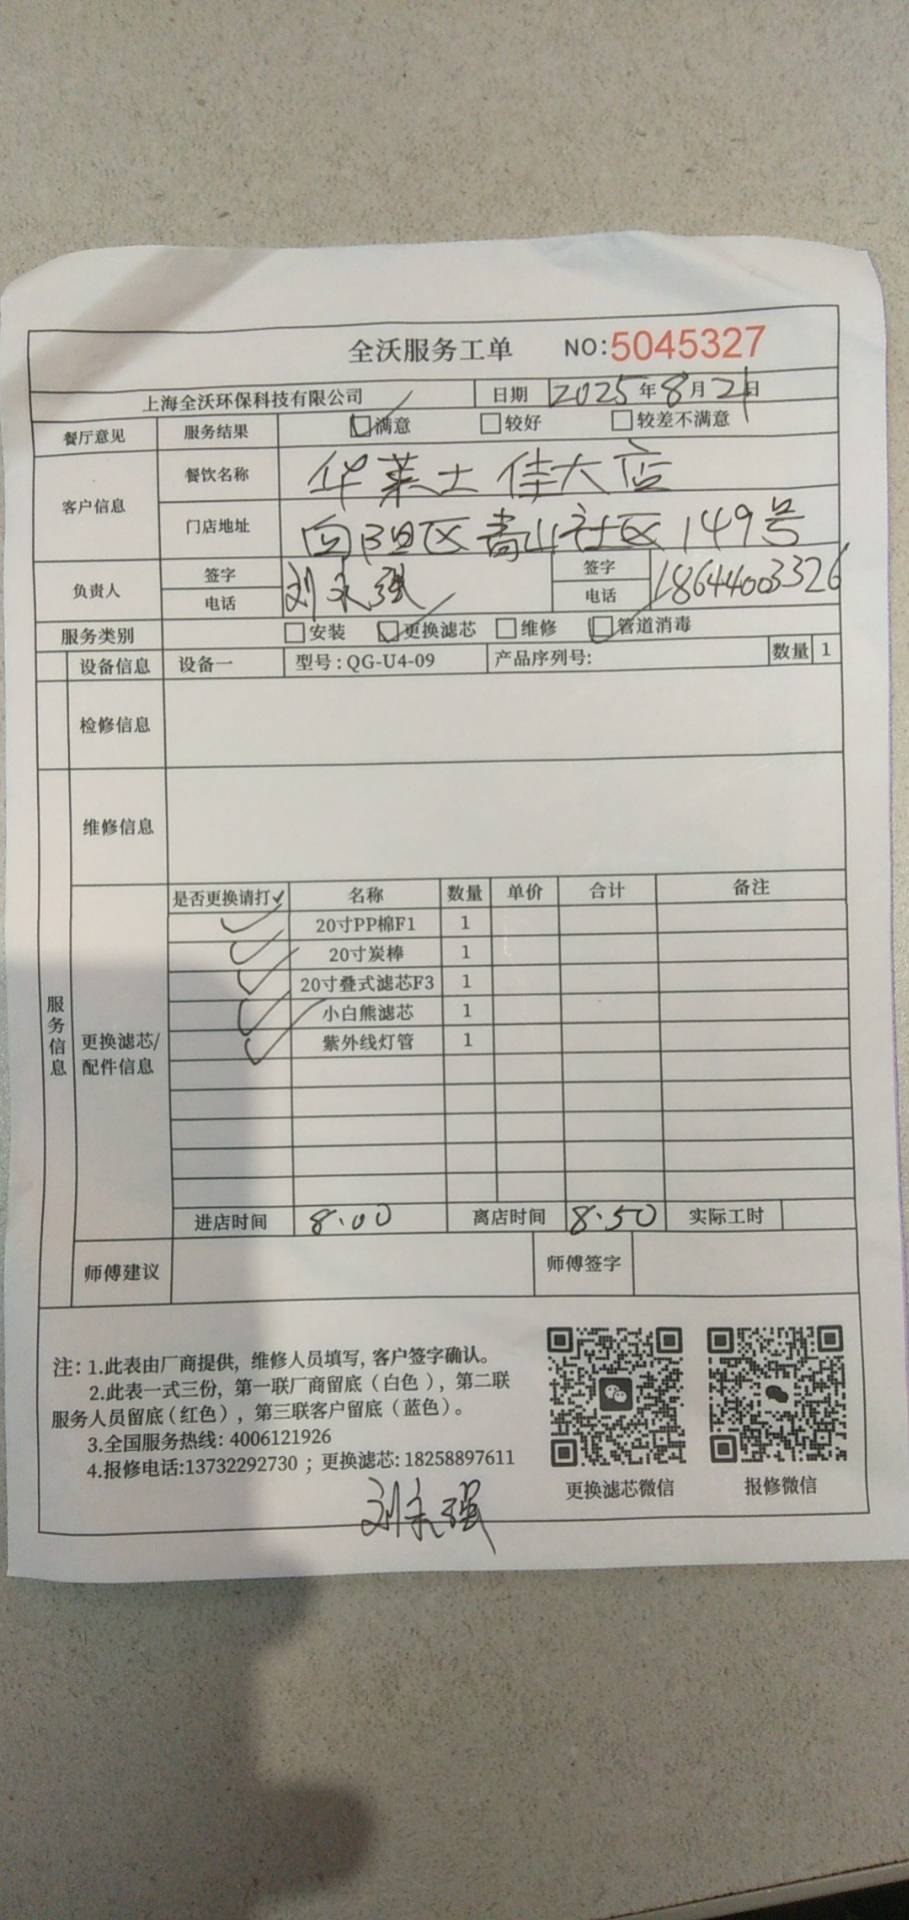 全沃服务工单 NO:5045327
上海全沃环保科技有限公司 日期 2025年8月21日
餐厅意见 服务结果 满意 较好 较差不满意
客户信息 餐饮名称 华莱士佳大店
门店地址 向阳区青山社区149号
负责人 签字 电话 刘永强 签字 电话 18644003326
服务类别 安装 更换滤芯 维修 管道消毒
设备信息 设备一 型号:QG-U4-09 产品序列号: 数量 1
检修信息
维修信息
服务信息
更换滤芯/配件信息
是否更换请打✓ 名称 数量 单价 合计 备注
✓ 20寸PP棉F1 1
✓ 20寸炭棒 1
✓ 20寸叠式滤芯F3 1
✓ 小白熊滤芯 1
✓ 紫外线灯管 1
进店时间 8:00 离店时间 8:50 实际工时
师傅建议 师傅签字
注:1.此表由厂商提供,维修人员填写,客户签字确认。
2.此表一式三份,第一联厂商留底(白色),第二联
服务人员留底(红色),第三联客户留底(蓝色)。
3.全国服务热线:4006121926
4.报修电话:13732292730;更换滤芯:18258897611
更换滤芯微信 报修微信
刘永强